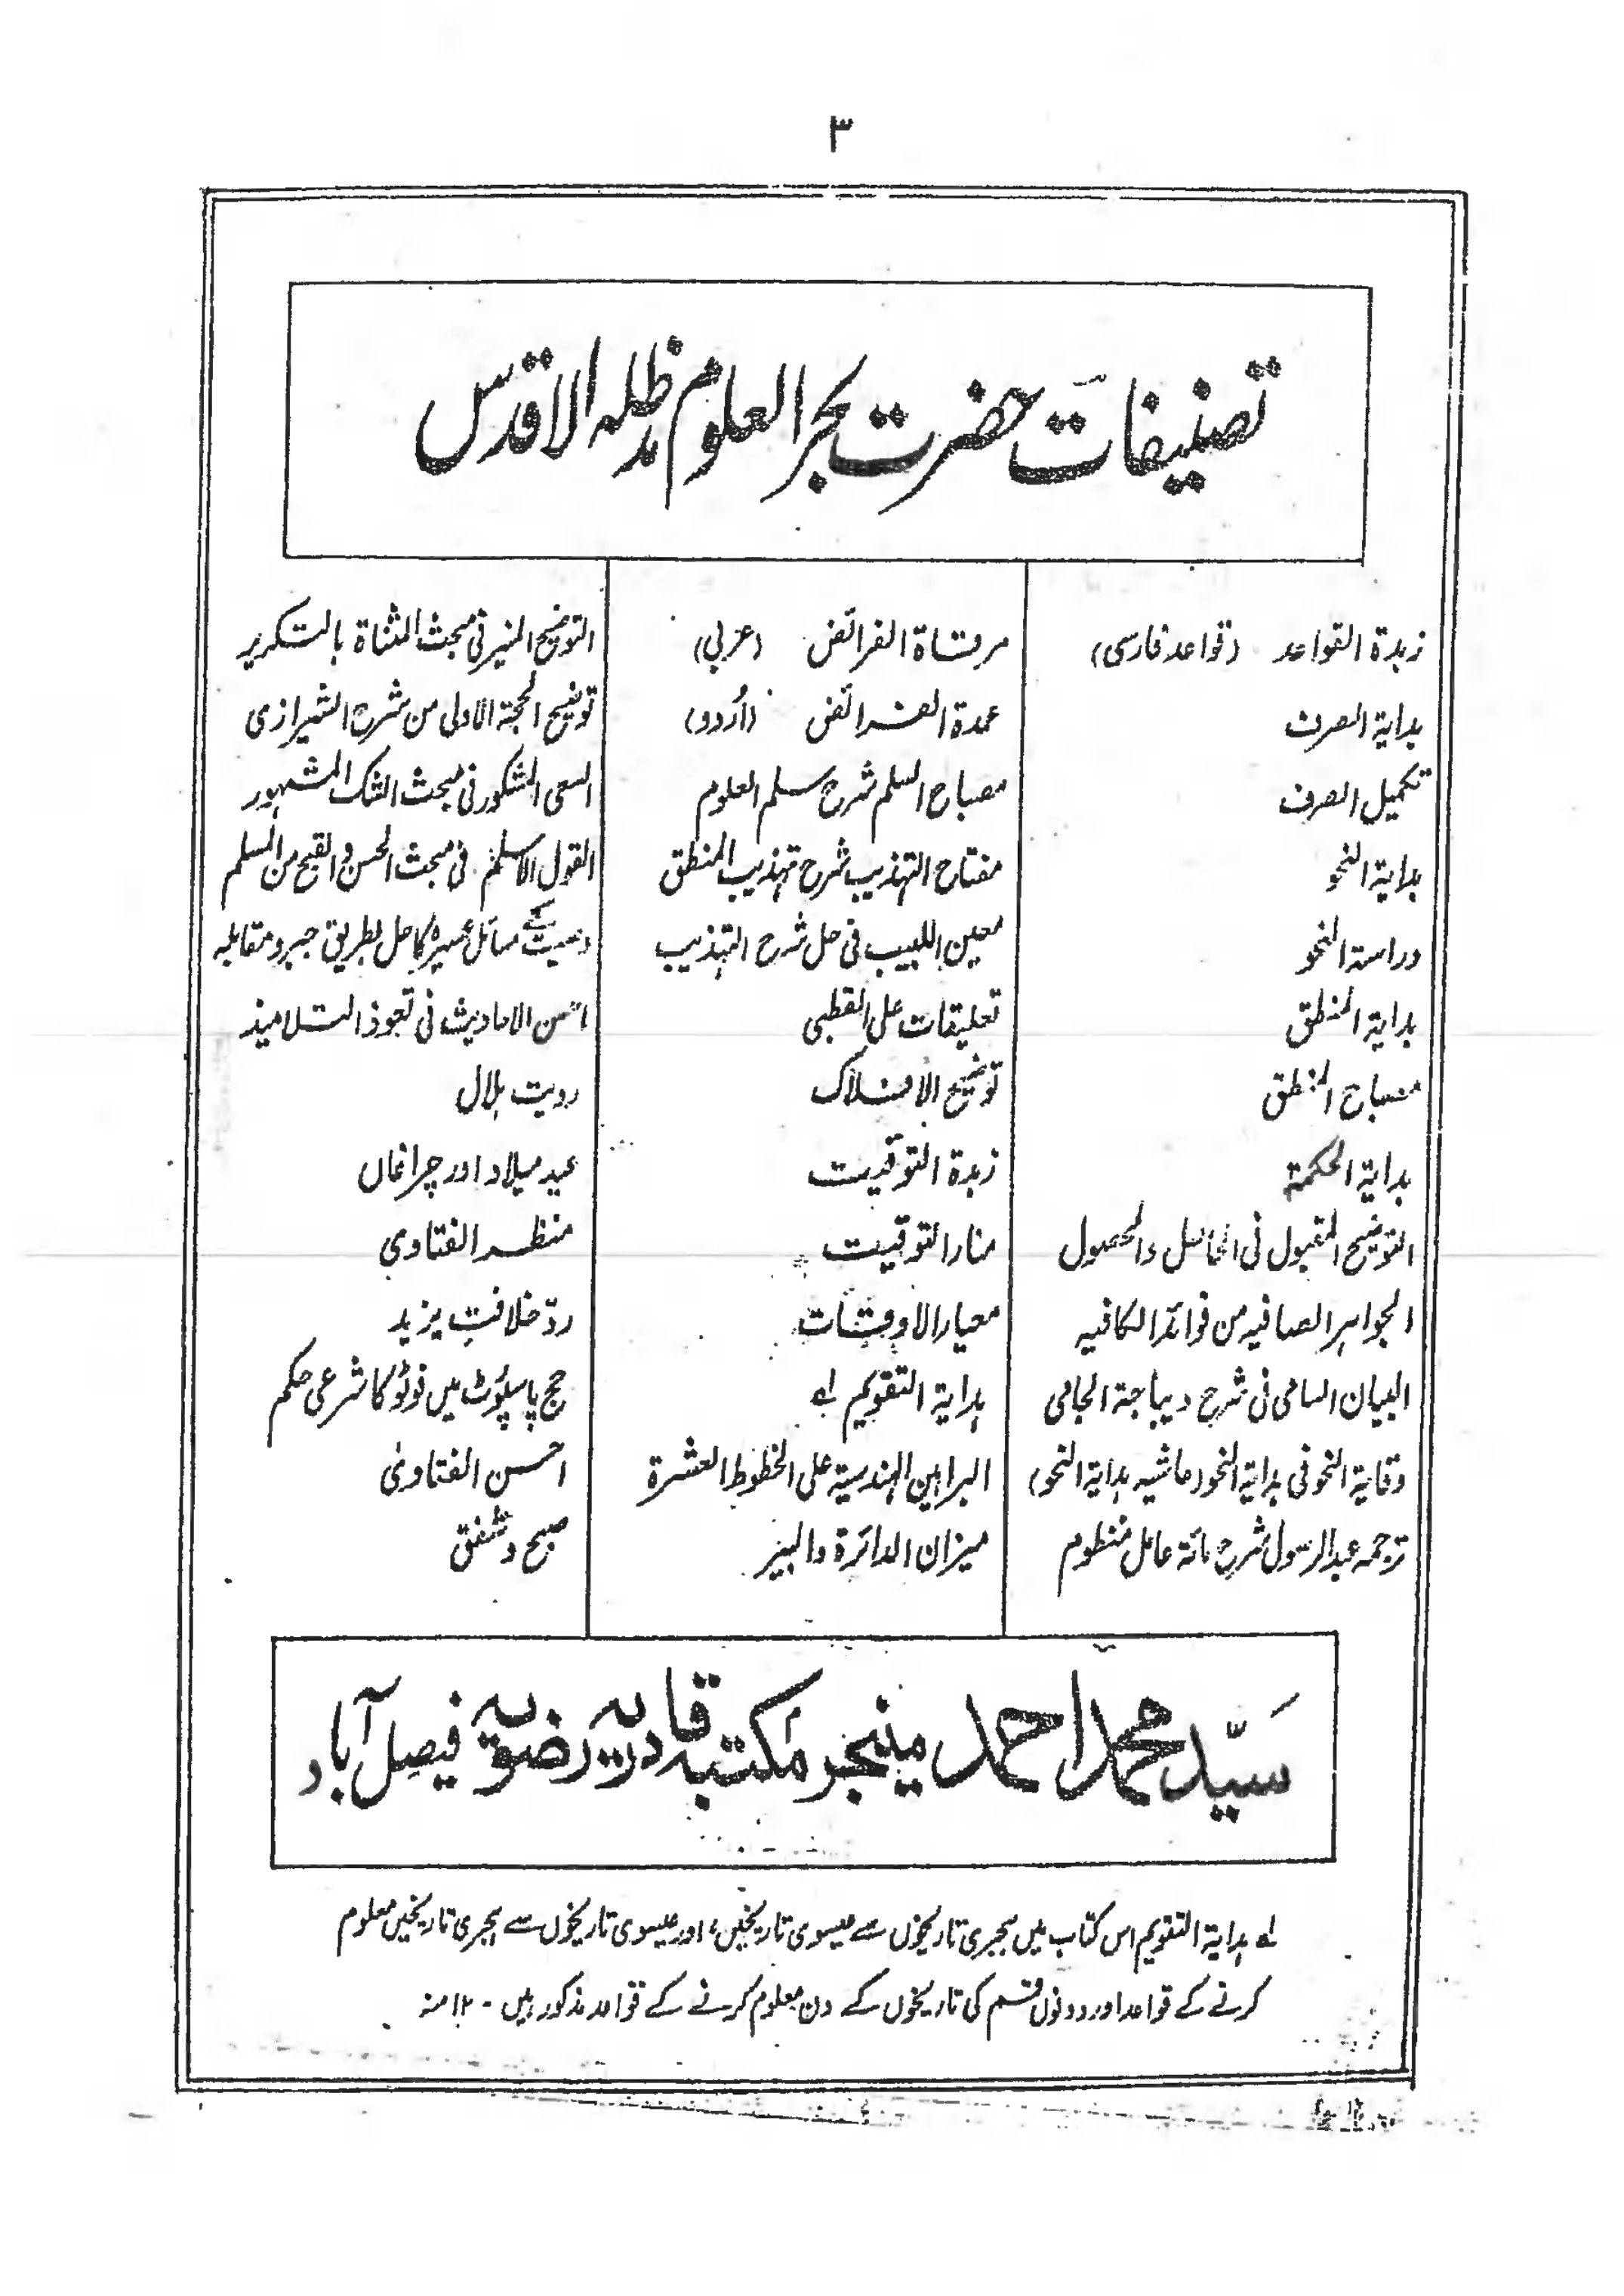 ۳
تصنیفات حضرت بحر العلوم مدظلہ الاقدس
زبدة القواعد (قواعد فارسی)
بدایة الصرف
تکمیل الصرف
بدایة النحو
دراسة النحو
بدایة المنطق
مصباح المنطق
بدایة الحکمة
التوضیح المقبول فی الحاصل والمحصول
الجواہر الصافیہ من فوائد الکافیہ
البیان السامی فی شرح دیباجة الجامی
وقایة النحو فی ہدایة النحو (حاشیہ ہدایة النحو)
ترجمہ عبدالرسول شرح مائة عامل منظوم
مرقاة الفرائض (عربی)
عمدة الفرائض (اُردو)
مصباح السلم شرح سلم العلوم
مفتاح التہذیب شرح تہذیب المنطق
معین اللبیب فی حل شرح التہذیب
تعلیقات علی القطبی
توضیح الافلاک
زبدة التوقیت
منار التوقیت
معیار الاوقات
ہدایة التقویم لے
البراہین الہندسیة علی الخطوط العشرة
میزان الدائرة والبیر
التوضیح المنیر فی مبحث المثناة بالتکریر
توضیح الحجة الاولی من شرح الشیرازی
السعی المشکور فی مبحث الشک المشہور
القول الاسلم فی مبحث الحسن والقبح من المسلم
وصیت کے مسائل عسیرہ کا حل بطریق جبر و مقابلہ
الاحادیث فی تعوذ التلامیذ
رویت ہلال
عید میلاد اور چراغاں
منظر الفتاوی
ردّ خلافتِ یزید
حج پاسپوٹ میں فوٹو کا شرعی حکم
احسن الفتاویٰ
صبح و شفق
سَیّد محمد احمد مینجر مَکتبہ قادریہ رَضویہ فیصل آباد
لے ہدایة التقویم اس کتاب میں ہجری تاریخوں سے عیسوی تاریخیں، اور عیسوی تاریخوں سے ہجری تاریخیں معلوم
کرنے کے قواعد اور دونوں قسم کی تاریخوں کے دن معلوم کرنے کے قواعد مذکور ہیں - ۱۲ منہ